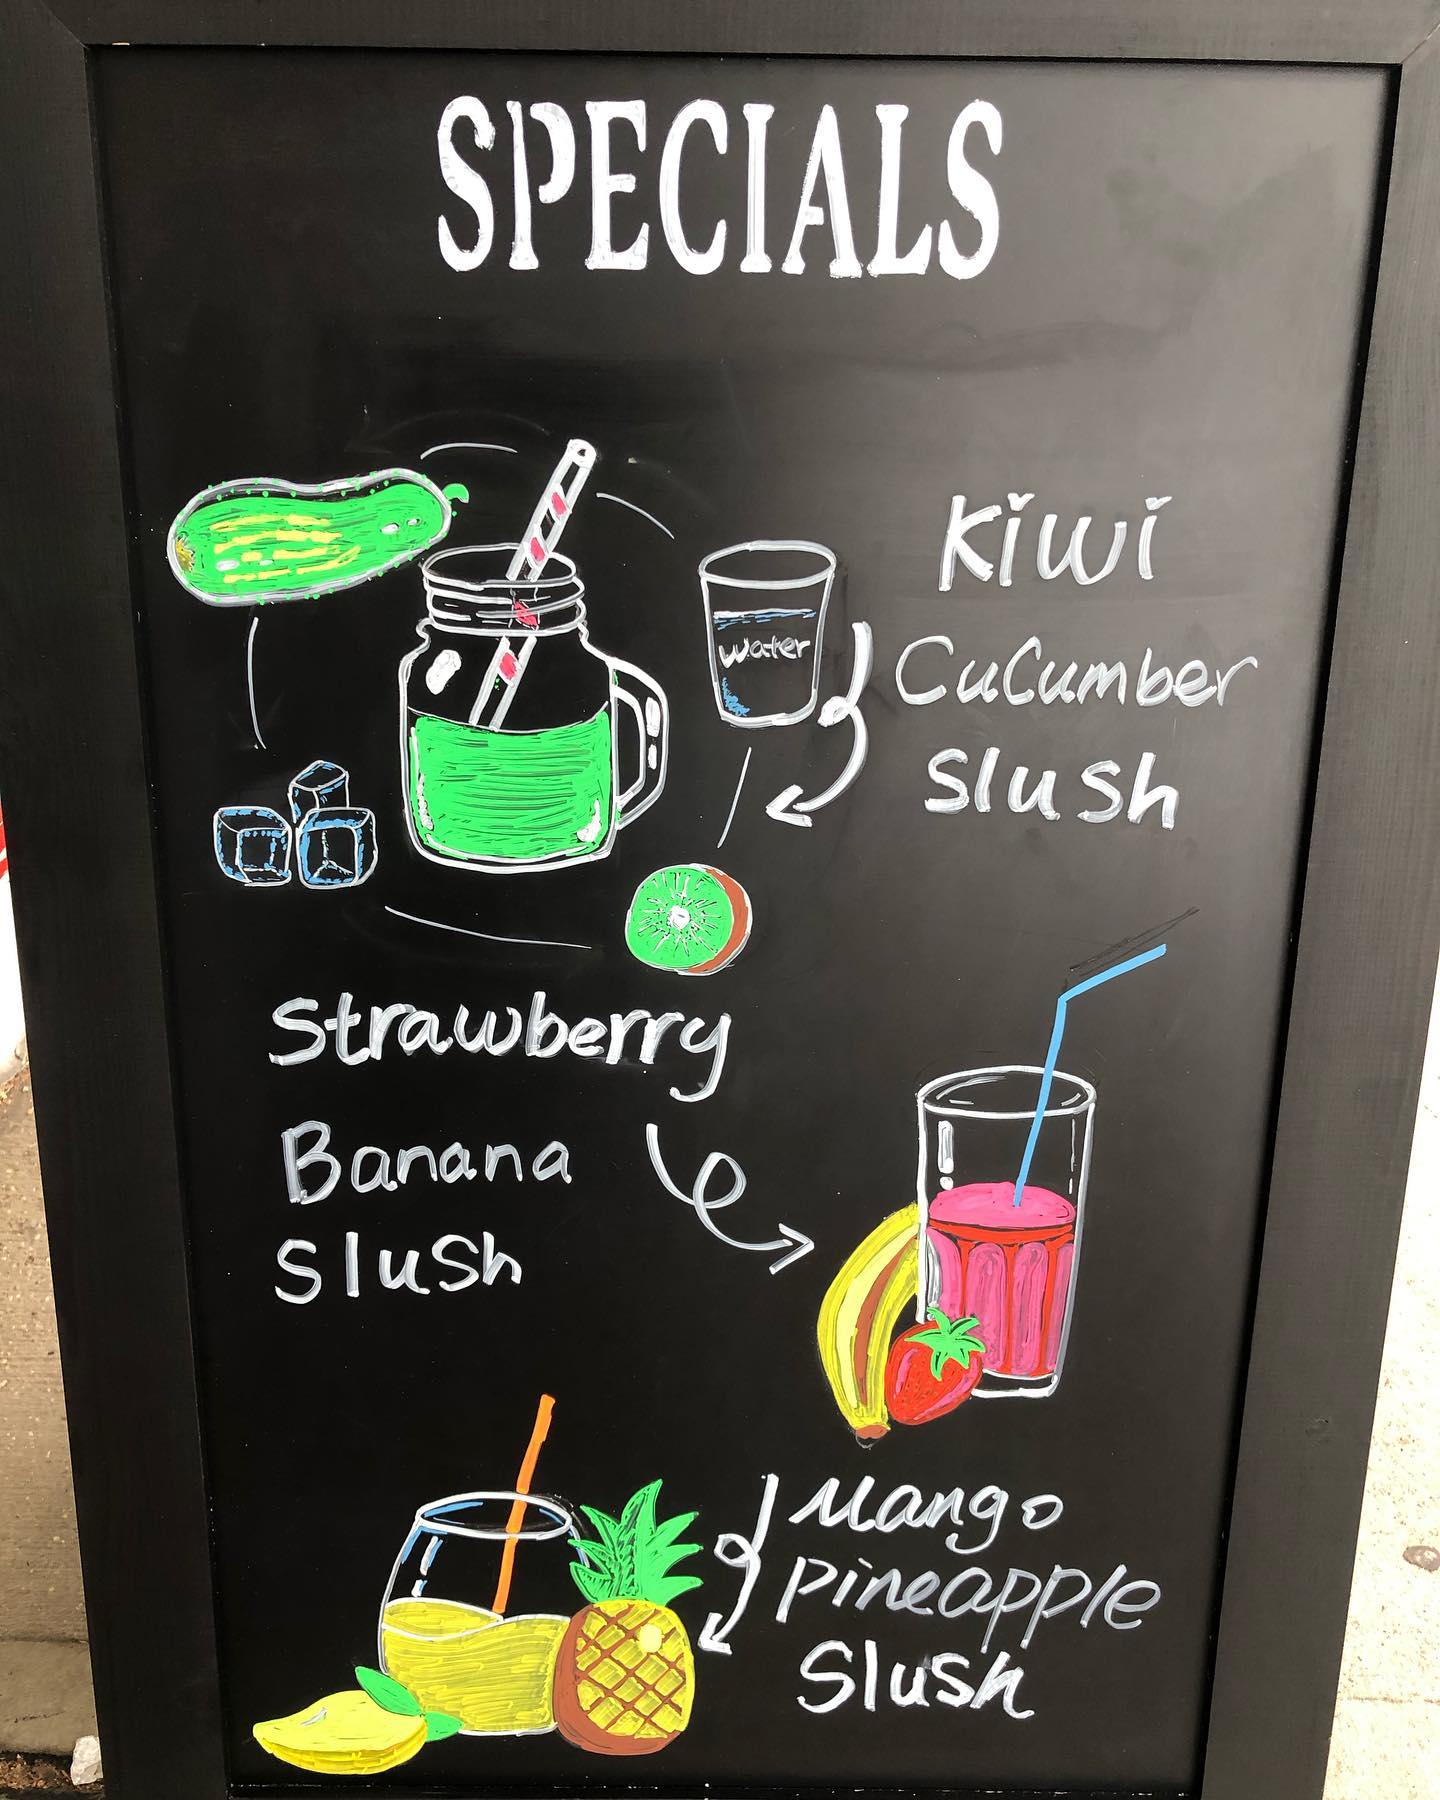 SPECIALS
water
Kiwi
Cucumber
Slush
Strawberry
Banana
Slush
Mango
Pineapple
Slush